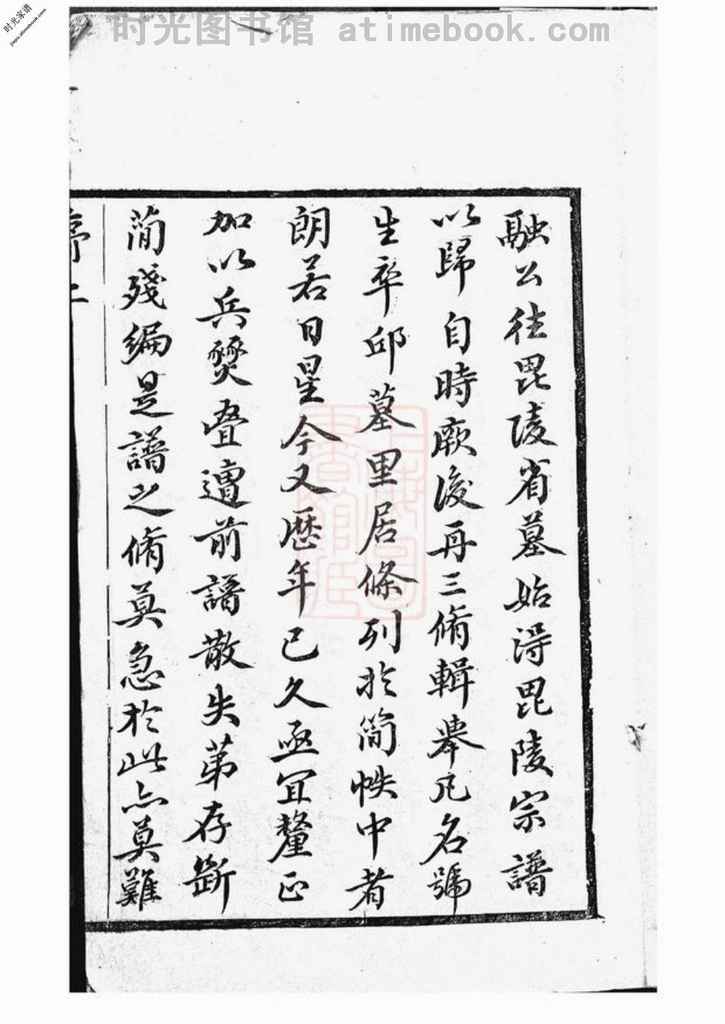 时光图书馆 atimebook.com
时光家谱
融公往毘陵省墓始得毘陵宗譜
以歸自時厥後再三脩輯舉凡名號
生卒邱墓里居條列於簡帙中者
朗若日星今又歷年已久亟宜釐正
加以兵燹叠遭前譜散失苐存斷
簡殘編是譜之脩莫急於此亦莫難
序